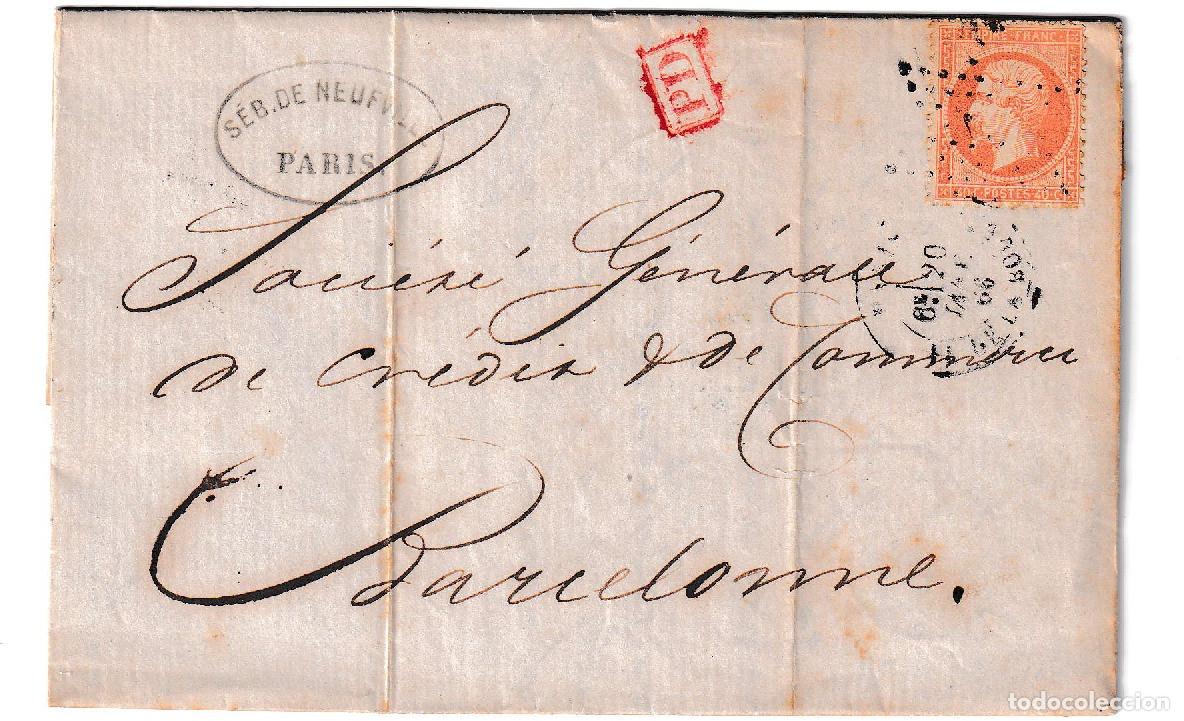 SÉB. DE NEUFVILLE
PARIS.
PD
EMPIRE FRANC
40 C POSTES 40 C
Société Générale
de Crédit & de Commerce
Barcelonne.
20
66
todocoleccion